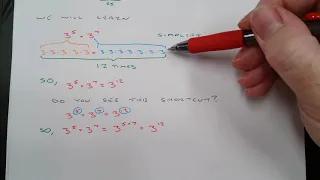 WE WILL LEARN
3⁵ · 3⁷ SIMPLIFY
3·3·3·3·3·3·3·3·3·3·3·3
12 TIMES
SO, 3⁵·3⁷ = 3¹²
DO YOU SEE THE SHORTCUT?
3⁵·3⁷ = 3¹²
SO, 3⁵·3⁷ = 3⁵⁺⁷ = 3¹²